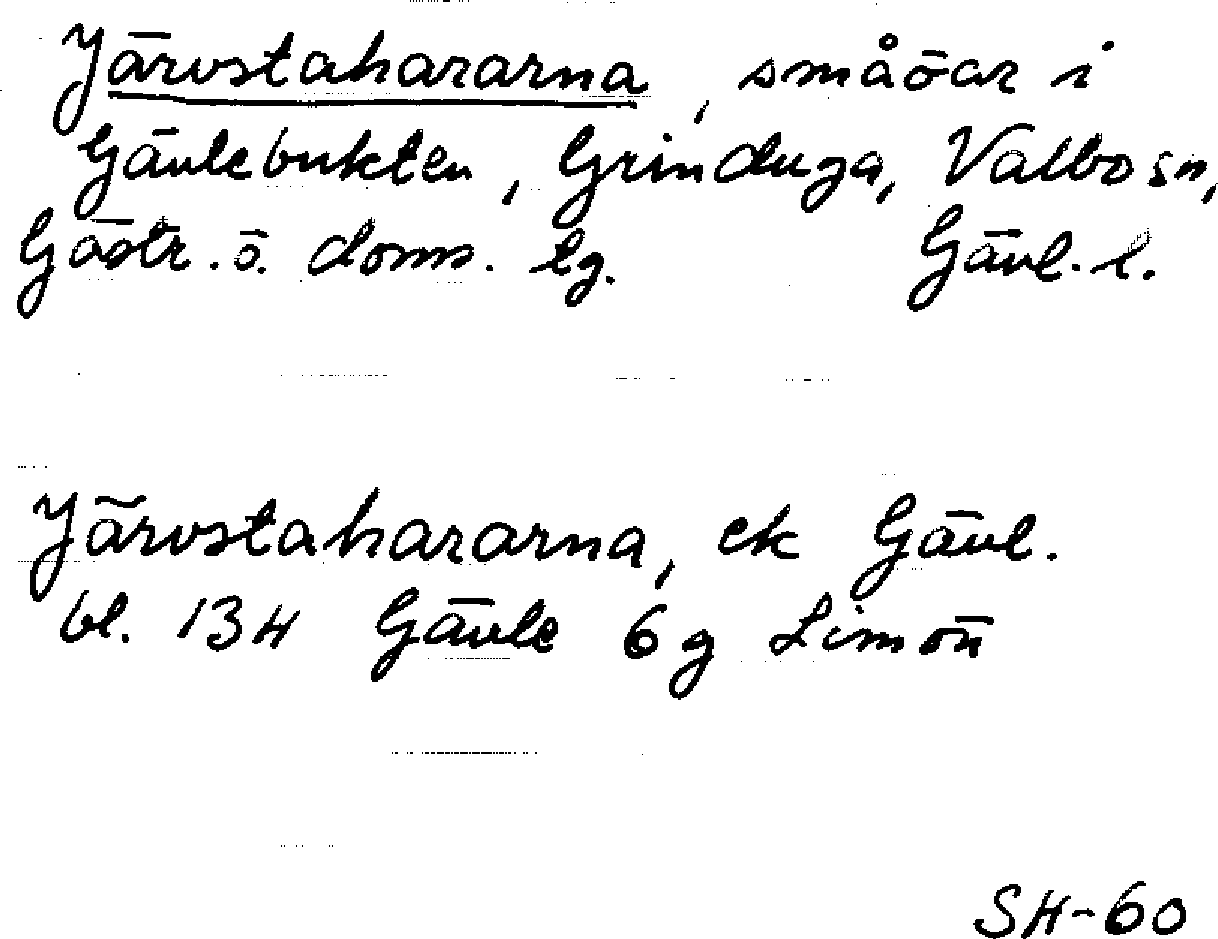 Järvstahararna, småöar i
Gävlebukten, Grinduga, Valbo sn,
Gästr. ö. doms. lg. Gävl. l.
Järvstahararna, ek Gävl.
bl. 134 Gävle 6g Limön
SH-60